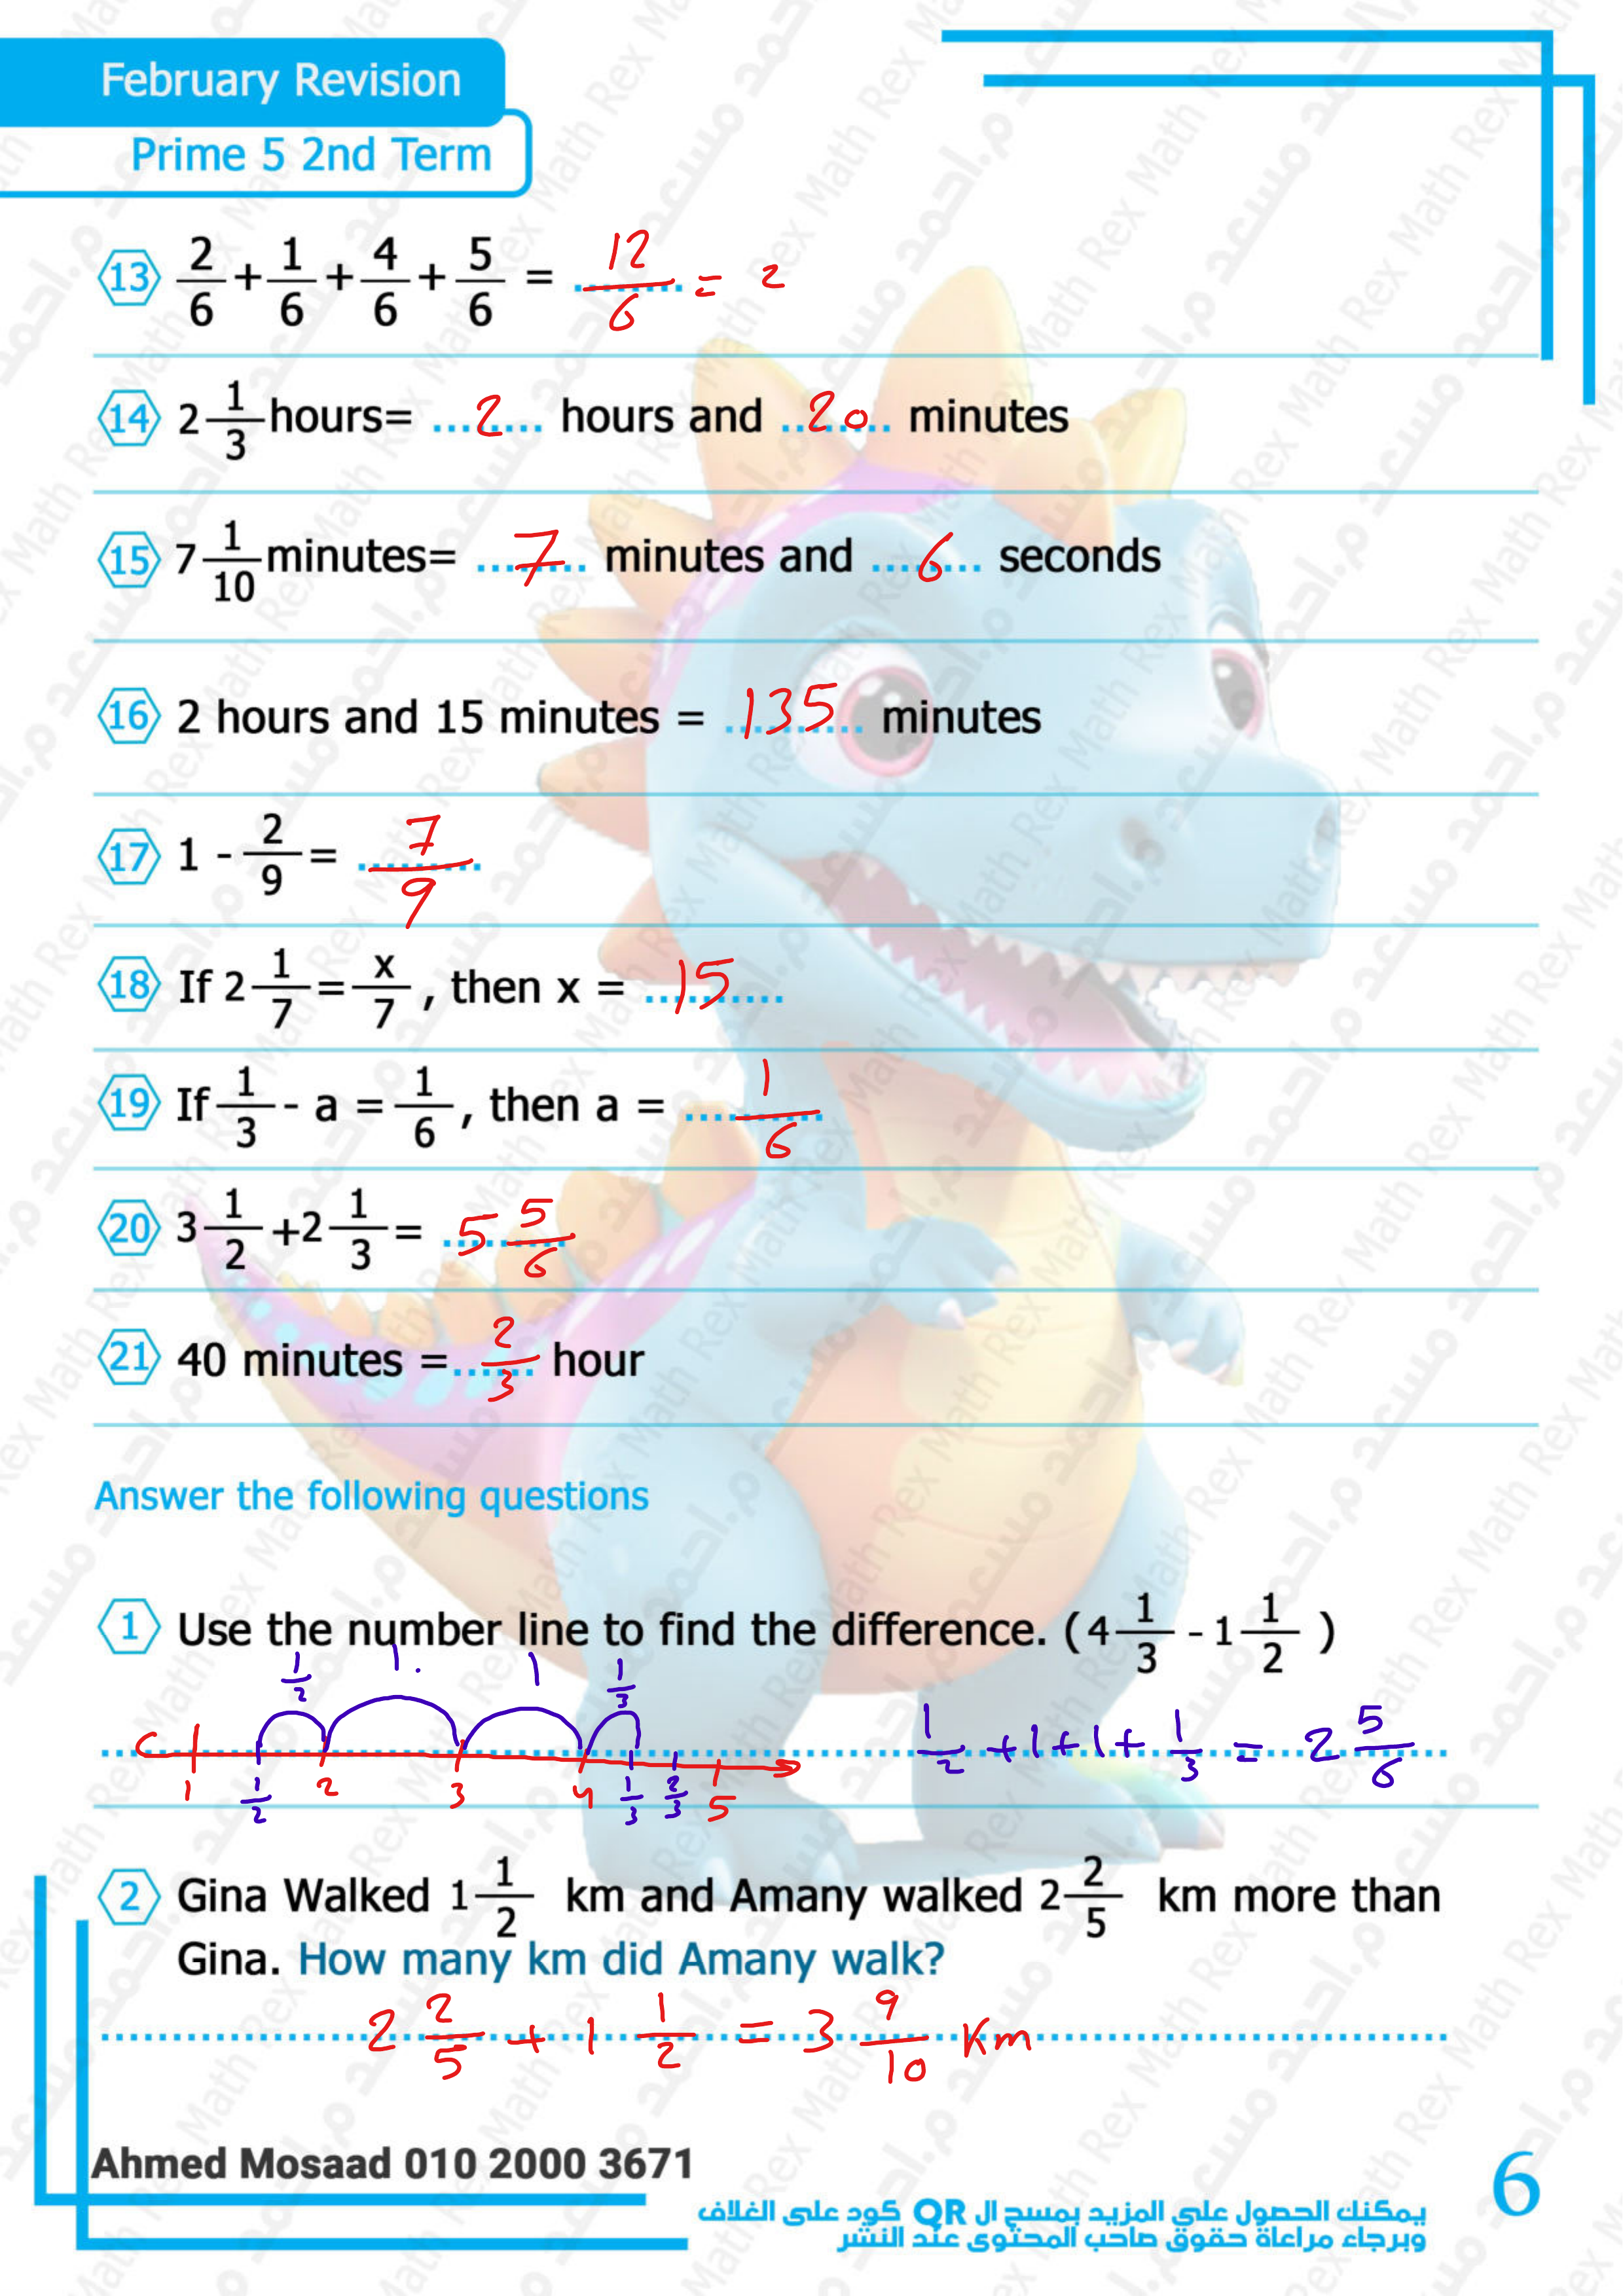 February Revision
Prime 5 2nd Term
13 2/6 + 1/6 + 4/6 + 5/6 = 12/6 = 2
14 2 1/3 hours= 2 hours and 20 minutes
15 7 1/10 minutes= 7 minutes and 6 seconds
16 2 hours and 15 minutes = 135 minutes
17 1 - 2/9 = 7/9
18 If 2 1/7 = x/7 , then x = 15
19 If 1/3 - a = 1/6 , then a = 1/6
20 3 1/2 +2 1/3 = 5 5/6
21 40 minutes = 2/3 hour
Answer the following questions
1 Use the number line to find the difference. (4 1/3 - 1 1/2 )
1/2 1 1 1/3
1/2 + 1 + 1 + 1/3 = 2 5/6
1 1/2 2 3 4 1/3 2/3 5
2 Gina Walked 1 1/2 km and Amany walked 2 2/5 km more than
Gina. How many km did Amany walk?
2 2/5 + 1 1/2 = 3 9/10 Km
Ahmed Mosaad 010 2000 3671
6
يمكنك الحصول علي المزيد بمسح ال QR كود على الغلاف
وبرجاء مراعاة حقوق صاحب المحتوى عند النشر
Math Rex م.احمد مسعد